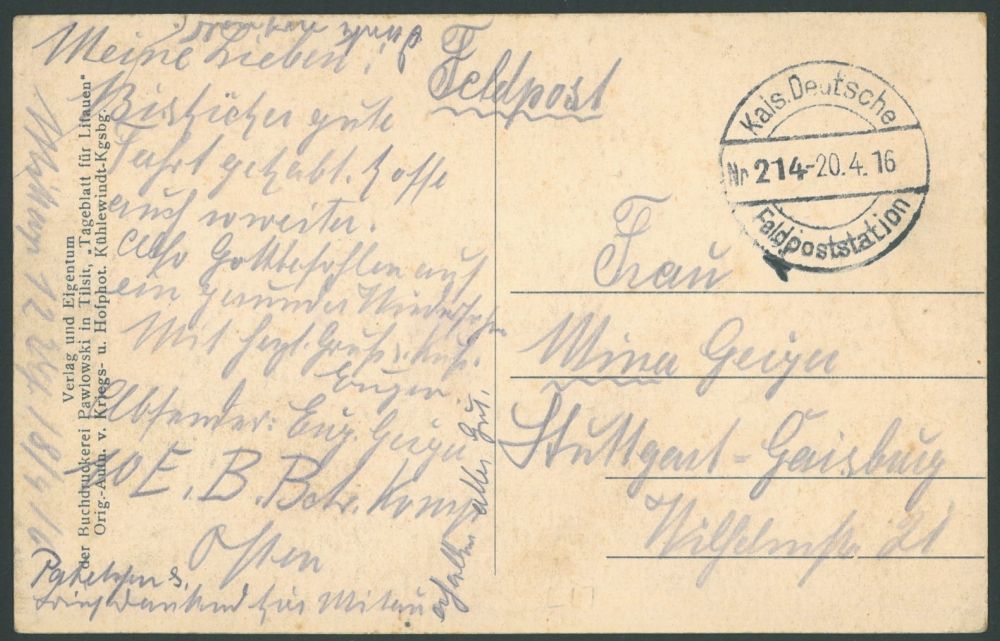 Meine Lieben!
Bisficher gute
Fahrt gehabt. Hoffe
auch weiter.
Also Gottbefohlen auf
ein gesundes Wiedersehn
Mit herzl. Gruß u. Kuß.
Eugen.
Absender: Eug. Geiger
10 E. B. Betr. Komp
Osten
Paketchen &
dankend für Mitau
erhalten alles gut.
18/4 16
Verlag und Eigentum
der Buchdruckerei Pawlowski in Tilsit, „Tageblatt für Litauen"
Orig.-Aufn. v. Kriegs- u. Hofphot. Kühlewindt-Kgsbg.
Feldpost
Kais. Deutsche
Nr 214-20.4.16
Feldpoststation
Frau
Mina Geiger
Stuttgart-Gaisburg
Wilhelmstr 21